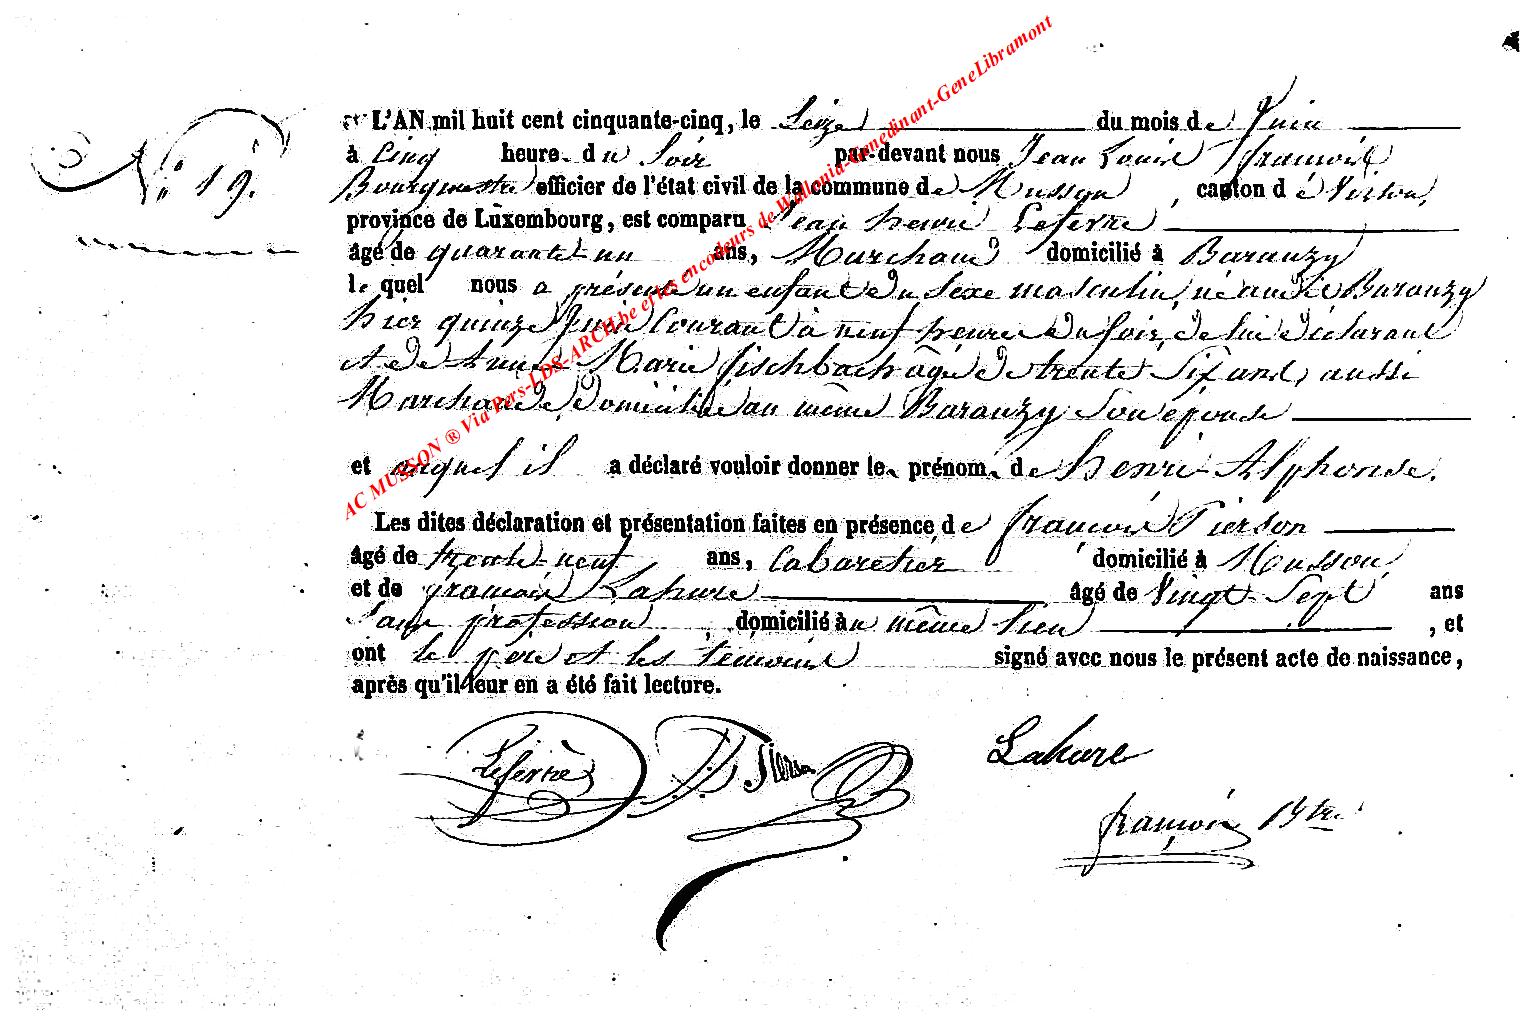 N° 19.
L'AN mil huit cent cinquante-cinq, le Seize du mois de Juin
à Cinq heure du Soir par-devant nous Jean Louis françois
Bourgmestre officier de l'état civil de la commune de Musson, canton de Virton,
province de Luxembourg, est comparu Jean henri Lefevre
âgé de quarante-un ans, Marchand domicilié à Baranzy
lequel nous a présenté un enfant du Sexe masculin, né audit Baranzy
hier quinze Juin Courant à neuf heures du soir, de lui déclarant
et de Marie fischbach âgé de trente Six ans, aussi
Marchande, domiciliée au même Baranzy Son épouse
et auquel il a déclaré vouloir donner le prénom de henri-Alphonse.
Les dites déclaration et présentation faites en présence de françois Pierson
âgé de trente-neuf ans, Cabaretier domicilié à Musson
et de françois Lahure âgé de Vingt-Sept ans
Sans profession, domicilié au même lieu, et
ont le père et les témoins signé avec nous le présent acte de naissance,
après qu'il leur en a été fait lecture.
Lefevre Pierson Lahure
françois Bgtre
AC MUSSON ® Via Pers-LDS-ARCH.be et les encodeurs de Wallonia-Genedinant-GeneLibramont